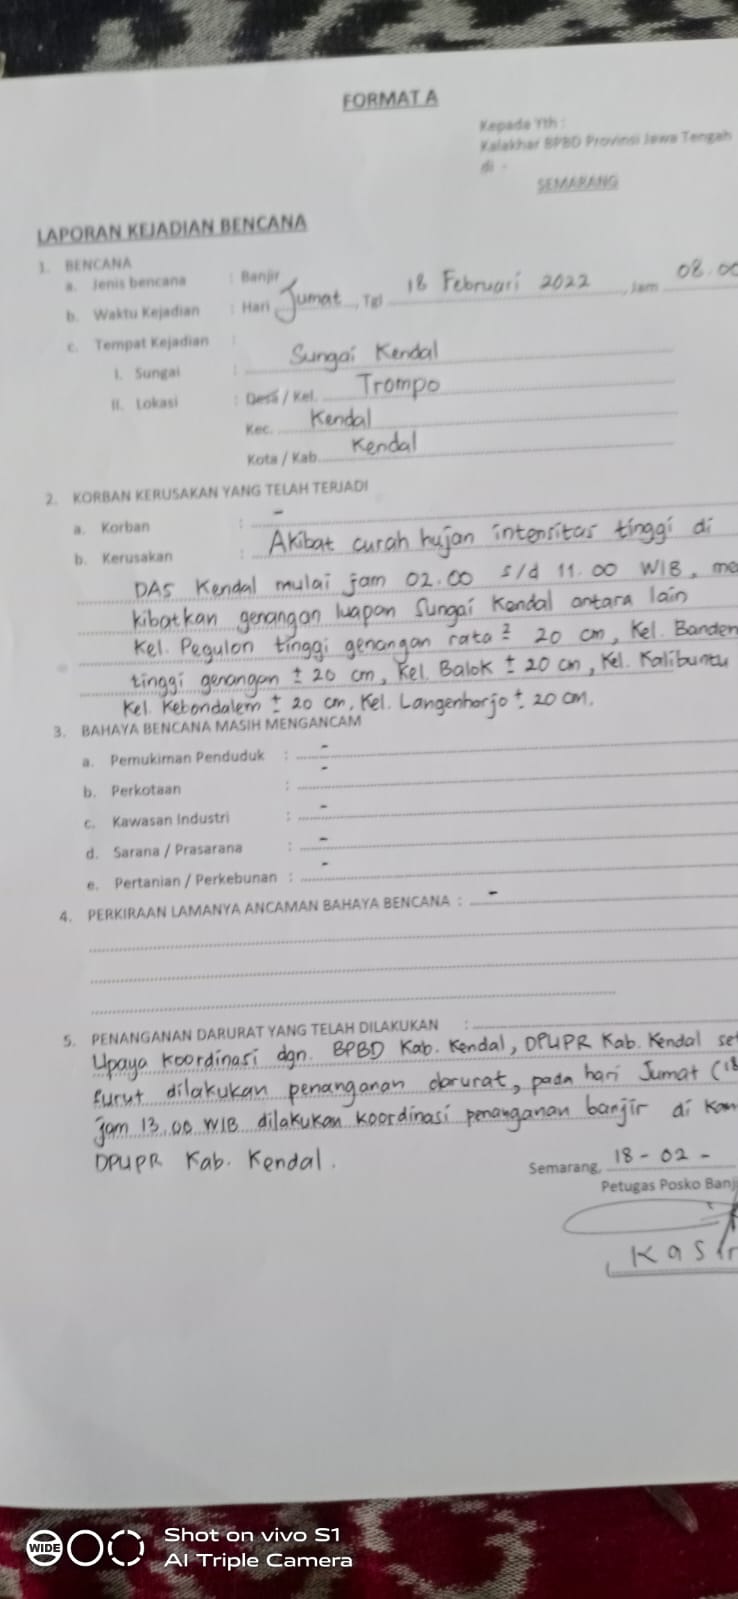 FORMAT A
Kepada Yth :
Kalakhar BPBD Provinsi Jawa Tengah
di -
SEMARANG
LAPORAN KEJADIAN BENCANA
1. BENCANA
a. Jenis bencana : Banjir
b. Waktu Kejadian : Hari Jumat, Tgl 18 Februari 2022, Jam 08.00
c. Tempat Kejadian :
I. Sungai : Sungai Kendal
II. Lokasi : Desa / Kel. Trompo
Kec. Kendal
Kota / Kab. Kendal
2. KORBAN KERUSAKAN YANG TELAH TERJADI
a. Korban : -
b. Kerusakan : Akibat curah hujan intensitas tinggi di
DAS Kendal mulai jam 02.00 s/d 11.00 WIB, me
kibatkan genangan luapan Sungai Kendal antara lain
Kel. Pegulon tinggi genangan rata ² 20 cm, Kel. Banden
tinggi genangan ± 20 cm, Kel. Balok ± 20 cm, Kel. Kalibuntu
Kel. Kebondalem ± 20 cm, Kel. Langenharjo ± 20 cm.
3. BAHAYA BENCANA MASIH MENGANCAM
a. Pemukiman Penduduk : -
b. Perkotaan : -
c. Kawasan Industri : -
d. Sarana / Prasarana : -
e. Pertanian / Perkebunan : -
4. PERKIRAAN LAMANYA ANCAMAN BAHAYA BENCANA : -
5. PENANGANAN DARURAT YANG TELAH DILAKUKAN :
Upaya Koordinasi dgn. BPBD Kab. Kendal, DPUPR Kab. Kendal se
furut dilakukan penanganan darurat, pada hari Jumat (18
jam 13.00 WIB dilakukan koordinasi penanganan banjir di Kan
DPUPR Kab. Kendal.
Semarang, 18-02-
Petugas Posko Banj
Kas
WIDE
Shot on vivo S1
AI Triple Camera